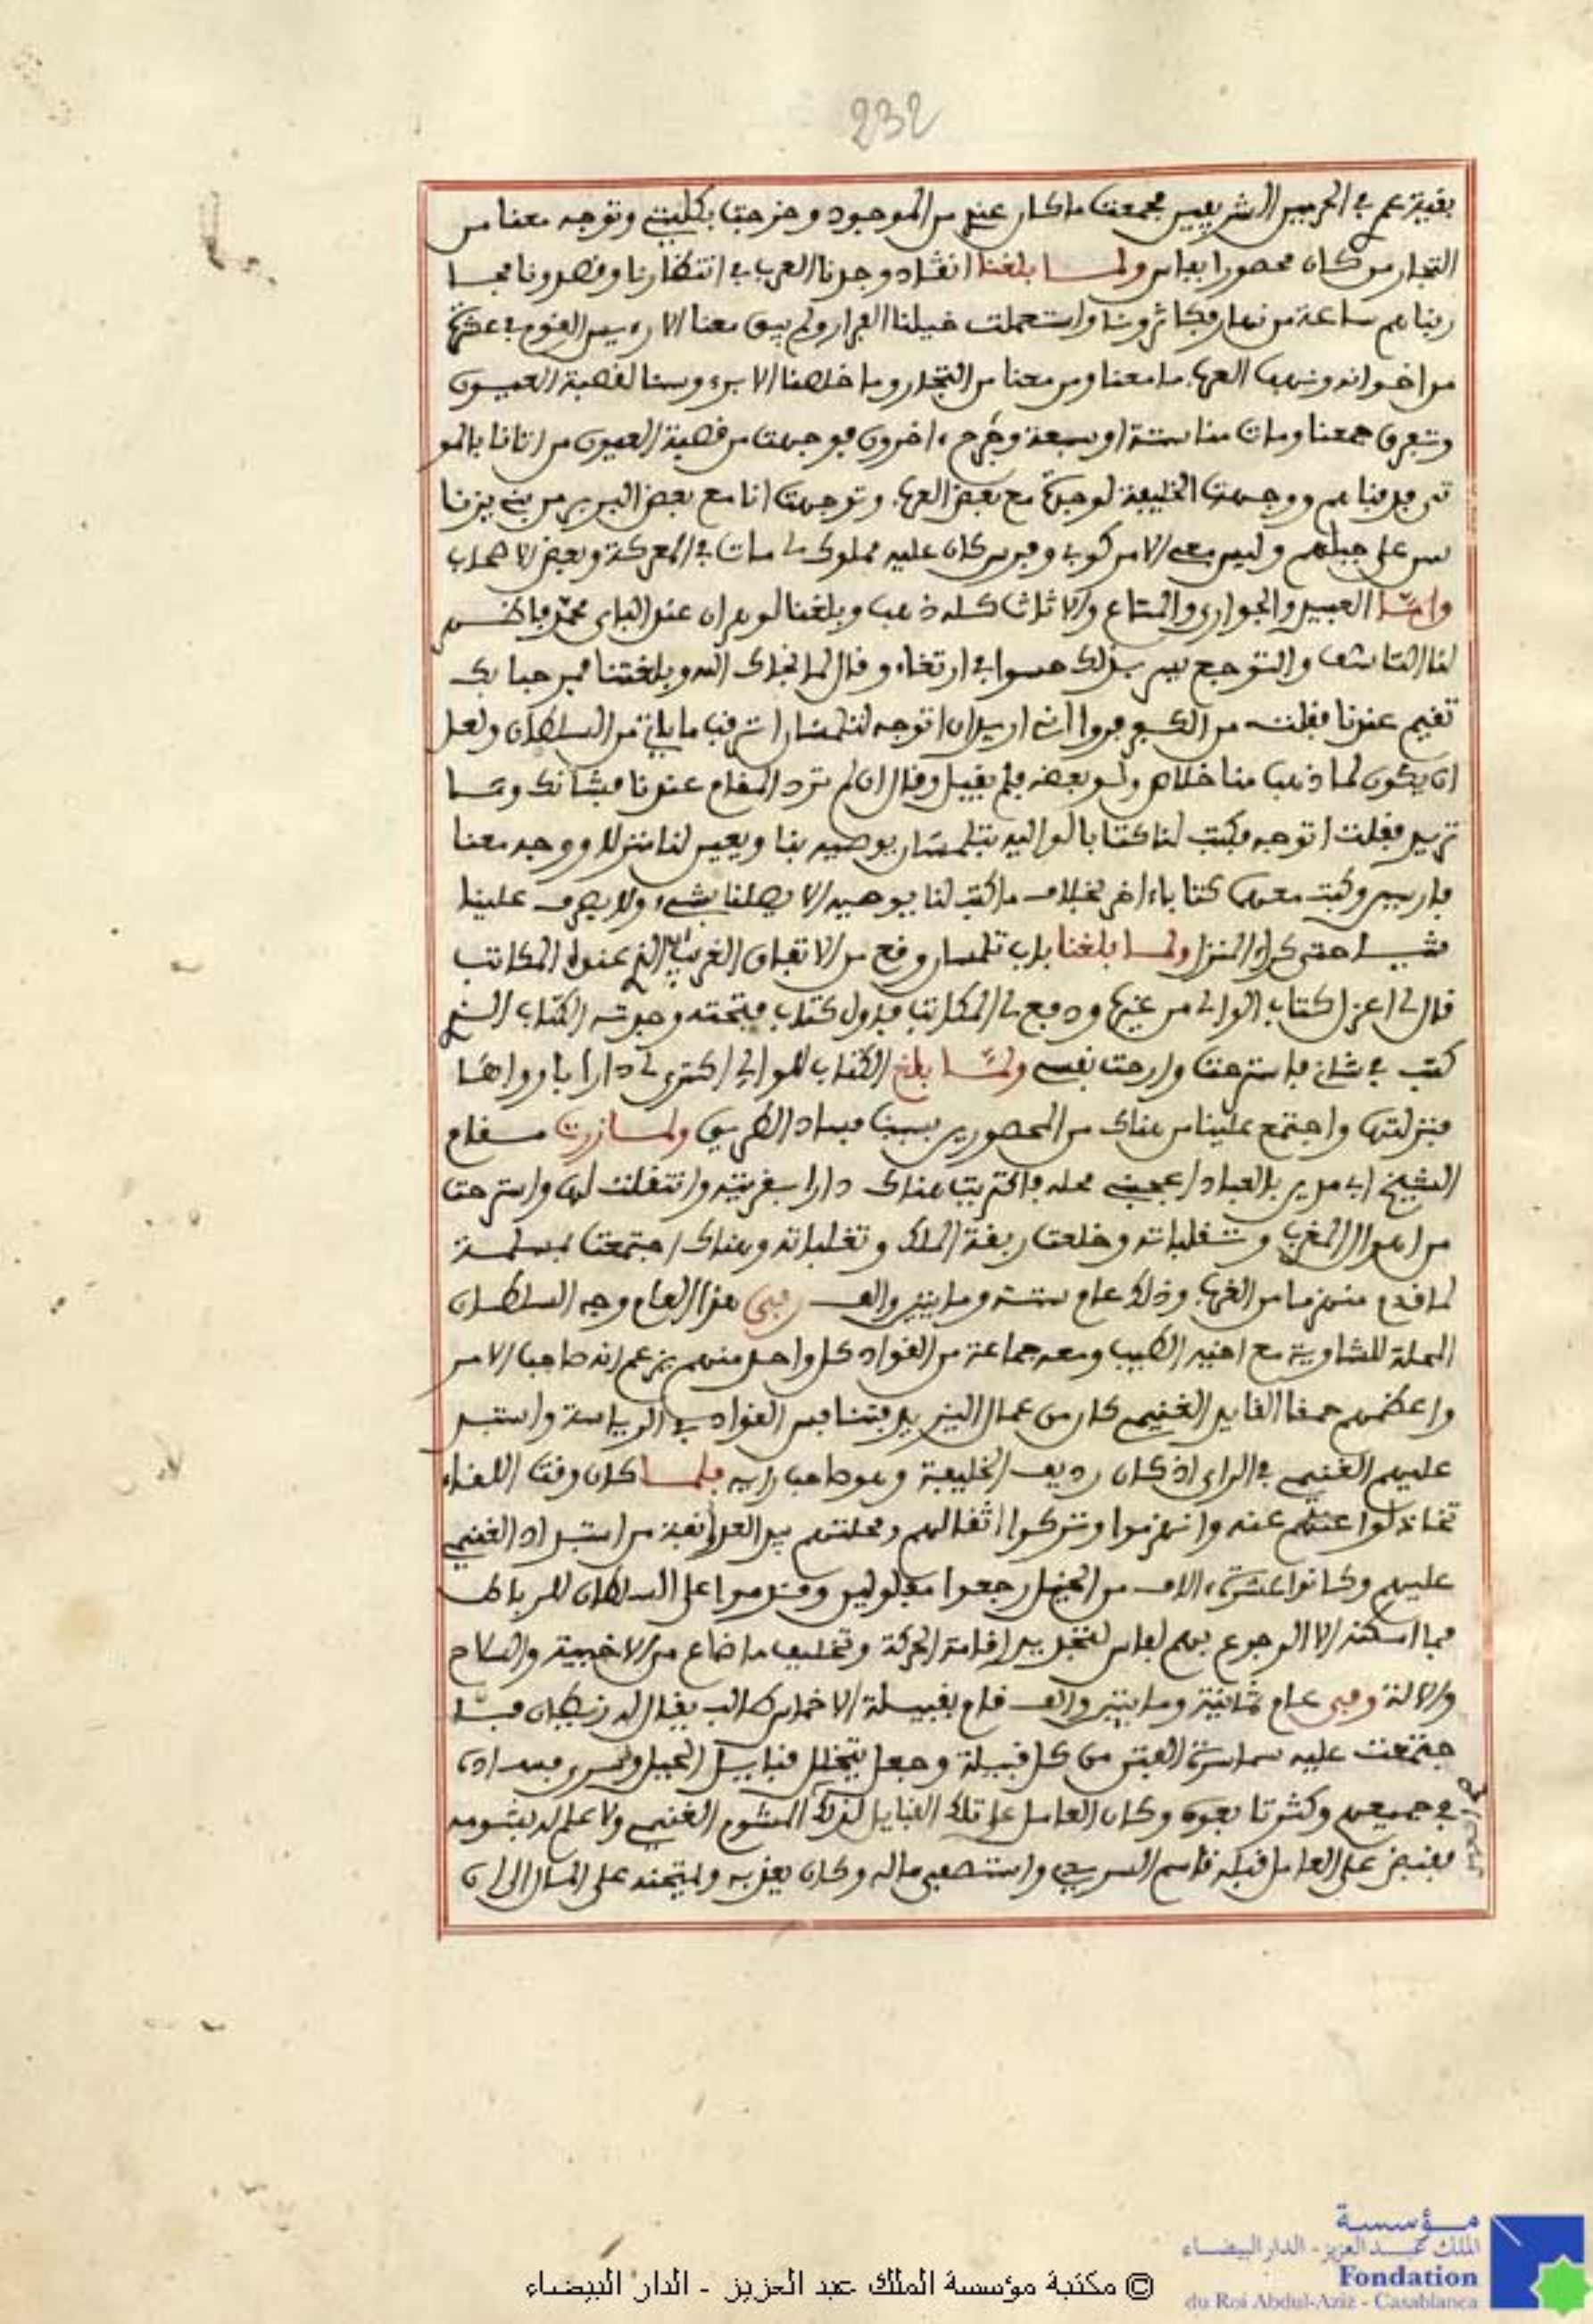 232
بقية عمري في الحرمين الشريفين فجمعت ما كان عندي من الموجود وخرجت بكليتي وتوجه معنا من
التجار من كان محصورا بفاس ولما بلغنا انقاد وجدنا العرب في انتظارنا وقصدونا فحا
ربناهم ساعة من نهار فكاثرونا واستعملت خيلنا الفرار ولم يبق معنا الا رءيس القوم في عشرة
من اخوانه ونهبت العرب ما معنا ومن معنا من التجار وما خلصنا الا برءوسنا لقصبة العيون
وتفرق جمعنا ومات منا ستة او سبعة وجرح ءاخرون فوجهت من قصبة العيون من اتانا بالمو
تى فدفناهم ووجهت الخليفة لوجدة مع بعض العرب وتوجهت انا مع بعض البربر من بني يزنا
سن على جبلهم وليس معي الا مركوبي وفرس كان عليه مملوك لي مات في المعركة وبعض الاصحاب
واما العبيد والجواري والمتاع والاثاث كله ذهب وبلغنا لوهران عند الباي محمد فاظهر
لنا التاسف والتوجع بيد بذلك حسوا في ارتغاء وقال لما نجاك الله وبلغتنا فمرحبا بك
تقيم عندنا فقلت من الكسع فروا اني اريد ان اتوجه لتلمسان اترقب ما ياتي من السلطان ولعل
ان يكون لما ذهب منا خلاص ولو بعضه فلم يقبل وقال ان لم ترد المقام عندنا فشانك وما
تريد فقلت اتوجه فكتب لنا كتابا لواليه بتلمسان يوصيه بنا ويعين لنا منزلا ووجه معنا
فارسين وكتب معهما كتابا ءاخر بخلاف ما كتب لنا يوصيه الا يصلنا بشيء ولا يصرف علينا
شيئا حتى كراء المنزل ولما بلغنا باب تلمسان وقع من الاتفاق الغريب ان الذي عنده المكاتب
قال لي اعزل كتاب الوالي من غيرها ودفع لي المكاتب فاول كتاب فتحته وجدته الكتاب الذي
كتب في شاني فاسترحت وارحت نفسي ولما بلغ الكتاب للوالي اكترى لي دارا باوراها
فنزلتها واجتمع علينا من هناك من المحصورين بسبب فساد الطريق ولما زرت مقام
الشيخ ابي مدين بالعباد اعجبني محله فاكتريت هناك دارا بقريته وانتقلت لها واسترحت
من اهوال المغرب وتقلباته وخلعت ربقة الملك وتغلباته وهناك اجتمعت بمسلمة
لما قدم منهزما من الغرب وذلك عام ستة وماتين والف وفي هذا العام وجه السلطان
المحلة للشاوية مع اخيه الطيب ومعه جماعة من القواد كل واحد منهم يزعم انه صاحب الامر
واعظمهم حمقا القايد الغنيمي كان من عمال اليزيد فتنافس القواد في الرياسة واستبد
عليهم الغنيمي في الراي اذ كان رديف الخليفة وهو صاحب رايه فلما كان وقت اللقاء
تخاذلوا عنهم عنه وانهزموا وتركوا اثقالهم ومحلتهم بيد العدو انفة من استبداد الغنيمي
عليهم وكانوا عشرة ءالاف من الخيل رجعوا مفلولين وقدموا على السلطان للرباط
فما امكنه الا الرجوع بهم لفاس لتجديد اقامة الحركة وتخليف ما ضاع من الاخبية والسلاح
والالة وفي عام ثمانية وماتين والف قام بقبيلة الاخماس طالب يقال له زيطان فتا
جتمعت عليه سماسرة الفتن من كل قبيلة وجعل يتخلل قبايل الجبل وسرى فساده
في جميعهم وكثر تابعوه وكان العامل على تلك القبايل لذلك المشوم الغنيمي ولا علم له بشومه
فقبض على العامل قبله قاسم الصريدي واستصفى ماله وكان يعذبه ويمتحنه على المال الى ان
© مكتبة مؤسسة الملك عبد العزيز - الدار البيضاء
مؤسسة
الملك عبد العزيز - الدار البيضاء
Fondation
du Roi Abdul-Aziz - Casablanca